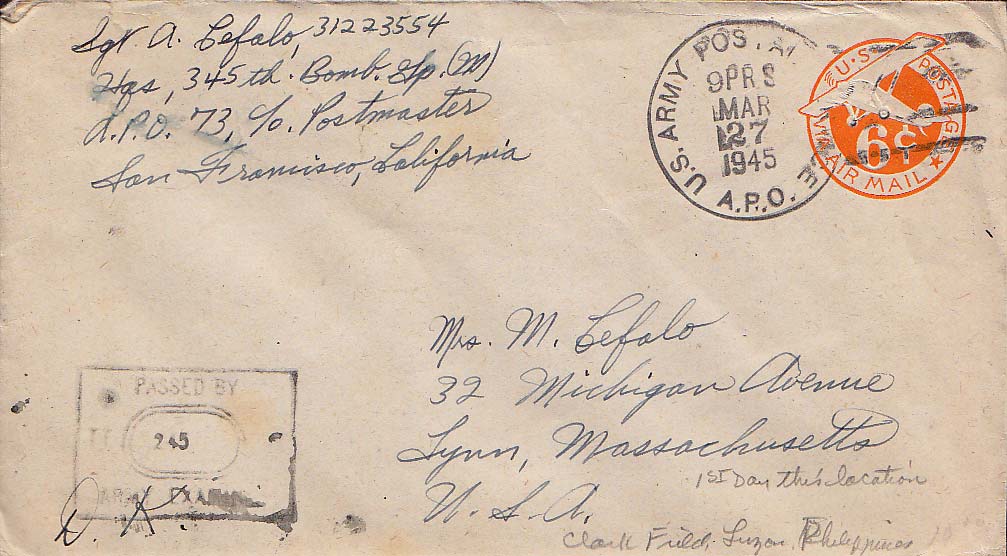 Sgt. A. Cefalo, 31223554
Hqs, 345th Bomb. Gp. (M)
A.P.O. 73, c/o. Postmaster
San Francisco, California
U.S. ARMY POSTAL
MAR
27
1945
A.P.O.
U.S. POSTAGE
6¢
VIA AIR MAIL
Mrs. M. Cefalo
32 Michigan Avenue
Lynn, Massachusetts
U. S. A.
1ST Day this location
Clark Field, Luzon, Philippines
PASSED BY
245
ARMY EXAMINER